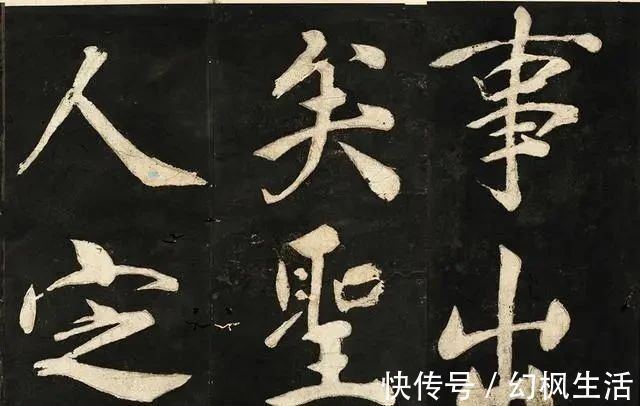 事出
矣聖
人定
快传号 / 幻枫生活